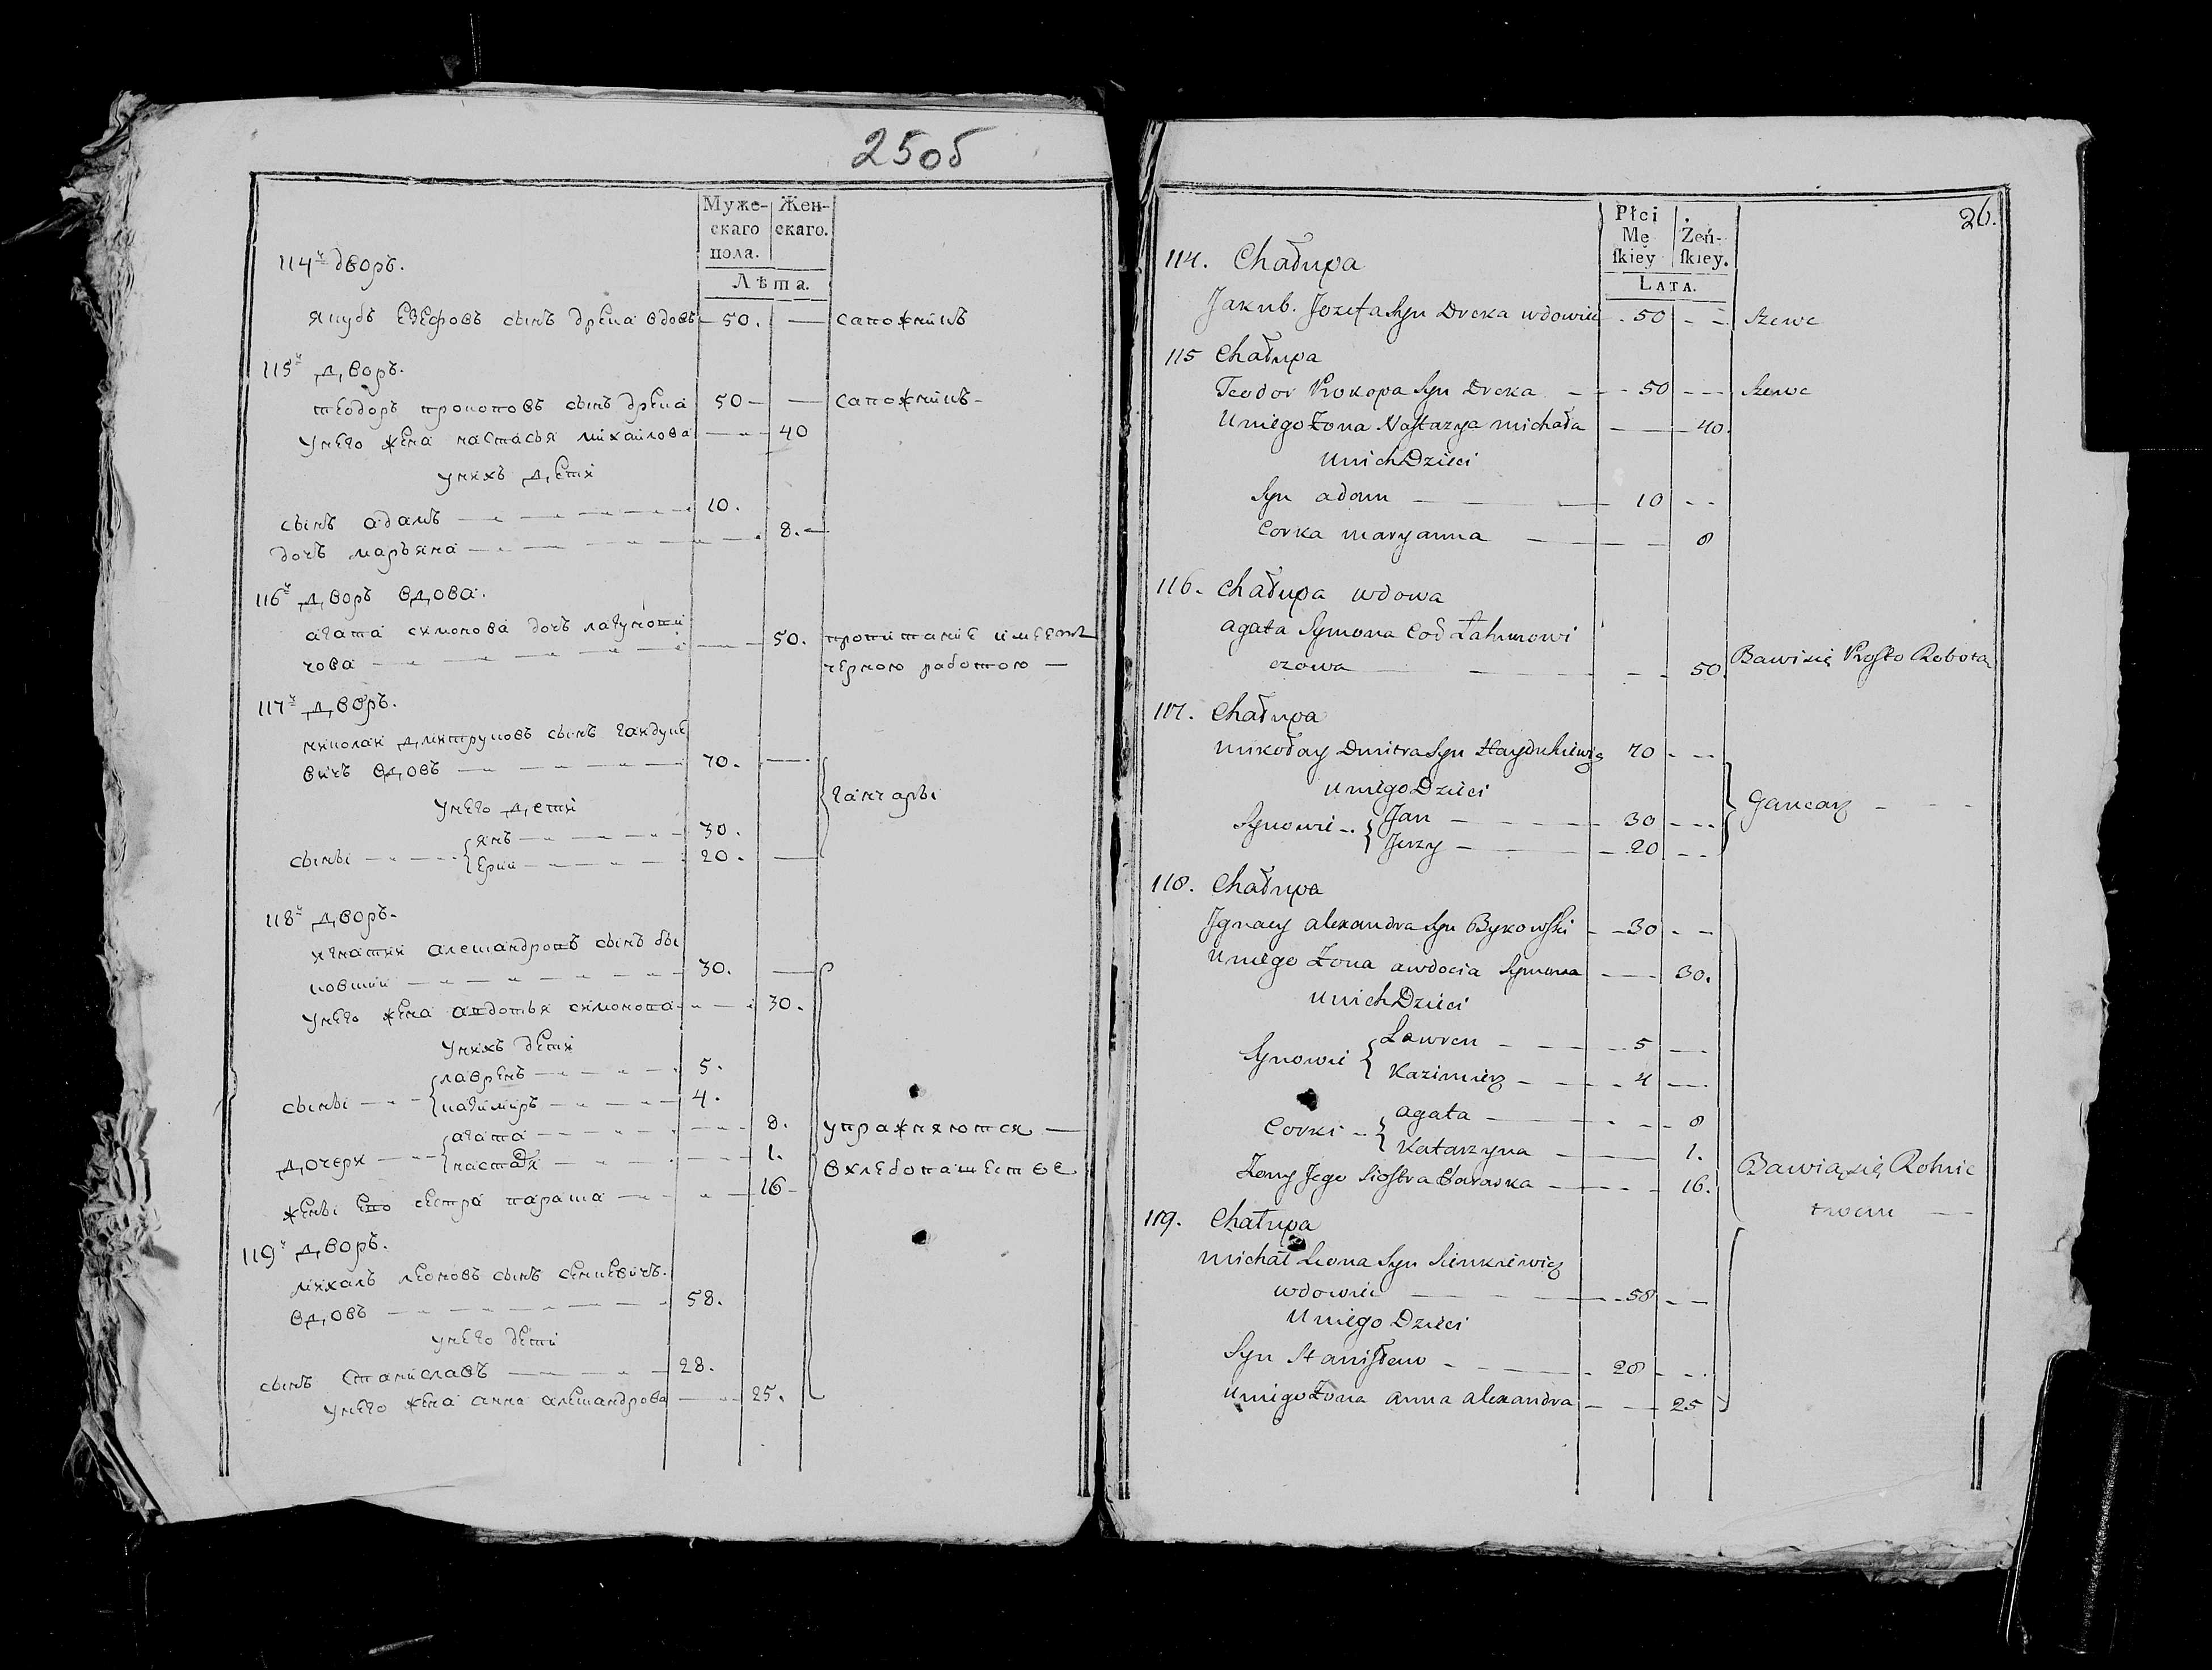 25об
Муже-
скаго
пола.
Жен-
скаго.
Лѣта.
114й дворъ.
якубъ езефовъ сынъ дрека вдовъ — 50. — сапожникъ
115й дворъ.
теодоръ прокоповъ сынъ дрека 50 — — сапожникъ —
унего жена настасья михайлова — 40
унихъ дети
сынъ адамъ — 10.
дочъ марьяна — 8. —
116й дворъ вдова.
агата симонова дочъ лагунови
чова — 50. пропитание имеетъ
черною работою —
117й дворъ.
николаи дмитруковъ сынъ гаидуке
вичъ вдовъ — 70. —
унего дети
сыны — янъ — 30.
ерии — 20. —
ганчары
118й дворъ.
игнатии александровъ сынъ бы
ковшии — 30. —
унего жена авдотья симонова — 30.
унихъ дети
сыны — лавренъ — 5.
казимиръ — 4.
дочери — агата — 8.
настазя — 1.
жены его сестра параша — 16 —
упражняются —
вхлебопашестве
119й дворъ.
михалъ леоновъ сынъ сенкевичъ.
вдовъ — 58.
унего дети
сынъ станиславъ — 28.
унего жена анна александрова — 25.
26.
Płci
Mę
ſkiey
Żeń-
ſkiey.
LATA.
114. Chałupa
Jakub. Jozefa Syn Dreka wdowiec — 50 — Szewc
115 Chałupa
Teodor Prokopa Syn Dreka — 50 — Szewc
U niego Żona Nastazya michała — 40.
U nich Dzieci
Syn adam — 10 —
Corka maryanna — 8
116. Chałupa wdowa
agata Symona Cod Łahunowi
czowa — 50. Bawi się Prosto Robota
117. Chałupa
mikołay Dmitra Syn Hayduhiewicz 70 —
U niego Dzieci
Synowie — Jan — 30 —
Jerzy — 20 —
Gancarz —
118. Chałupa
Jgnacy alexandra Syn Bykowski — 30 —
U niego Żona awdocia Symona — 30.
U nich Dzieci
Synowie Lawren — 5 —
Kazimierz — 4 —
Corki — agata — 8
Katarzyna — 1.
Żony Jego Siostra Paraska — 16.
Bawią się Rolnic
twem —
119. Chałupa
michał Leona Syn Sienkiewicz
wdowiec — 58 —
U niego Dzieci
Syn Stanisław — 28 —
U niego Żona anna alexandra — 25